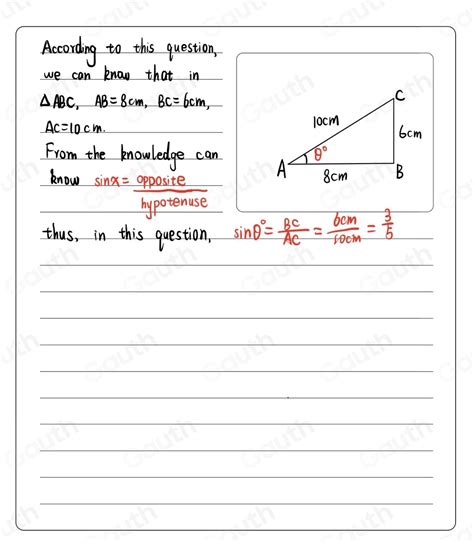 According to this question,
we can know that in
△ABC, AB=8cm, BC=6cm,
AC=10cm.
From the knowledge can
know sinx = opposite / hypotenuse
thus, in this question, sinθ° = BC/AC = 6cm/10cm = 3/5
C
10cm
6cm
θ°
A
8cm
B
Gauth